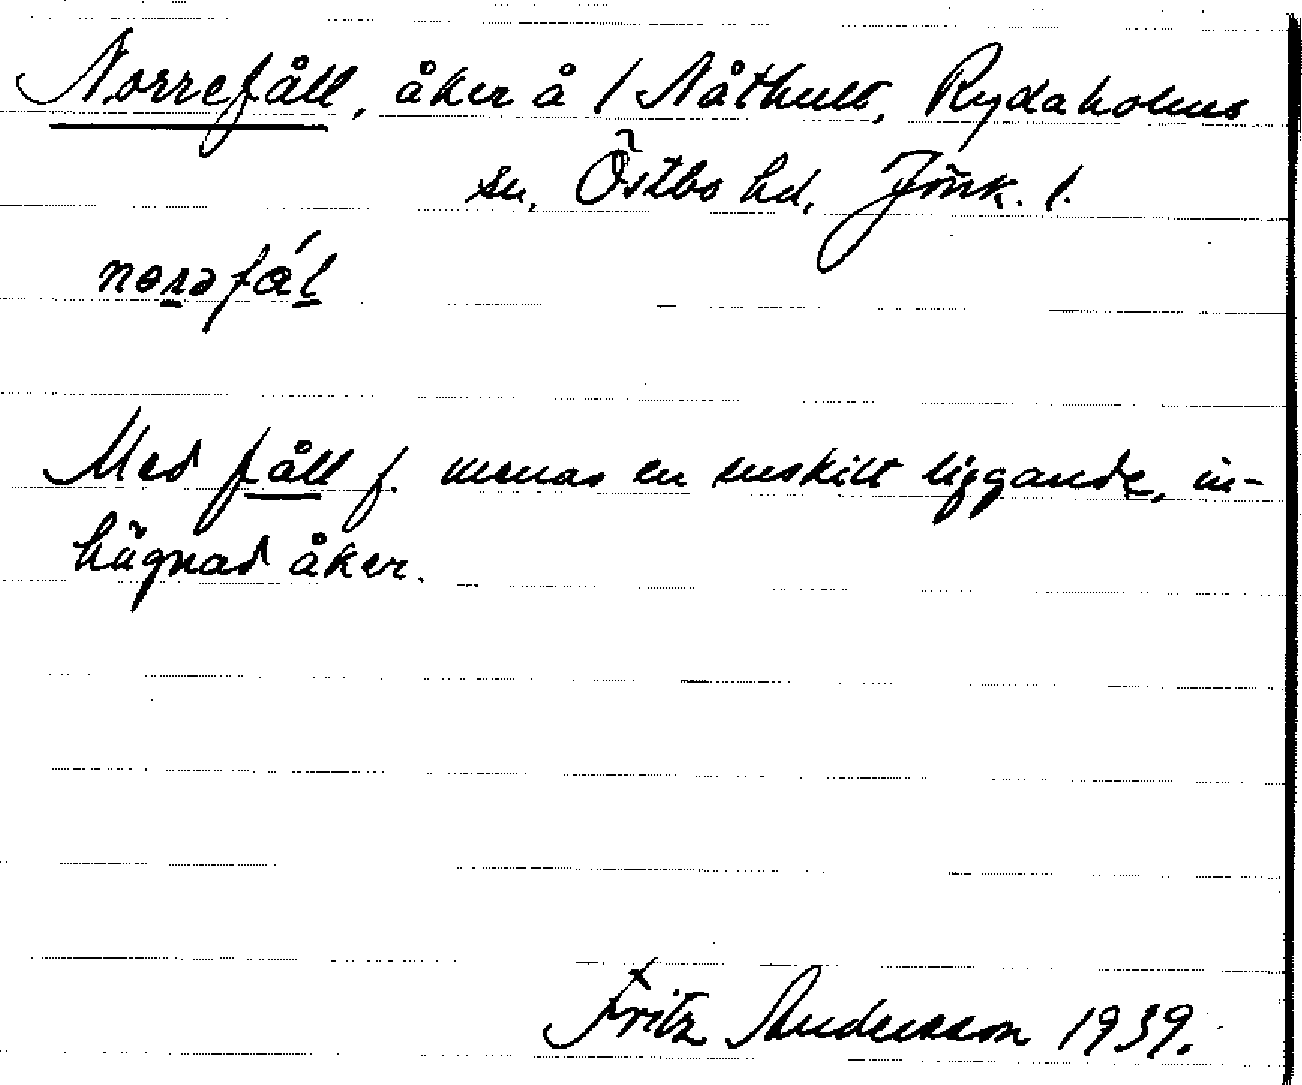 Norrefåll, åker å 1 Nåthult, Rydaholms
sn, Östbo hd, Jönk. l.
norəfål
Med fåll f. menas en enskilt liggande, in-
hägnad åker.
Fritz Andersson 1939.